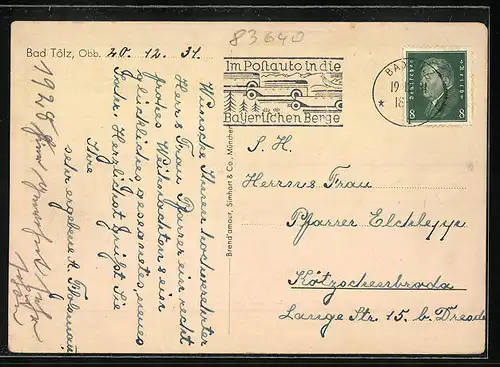 83640
Bad Tölz, Obb. 20. 12. 31.
Im Postauto in die
Bayerischen Berge
BA
19
18
Deutsches Reich
8 8
Wünsche Ihnen hochverehrter
Herrn Frau Pfarrer ein recht
frohes Weihnachten & ein
glückliches gesegnetes, neues
Herzlichst grüßt Sie
Ihre
sehr ergebene A.
1928
Brend'amour, Simhart & Co., München
S. H.
Herrn u Frau
Pfarrer
Kötzschenbroda
Lange Str. 15 b. Dresden